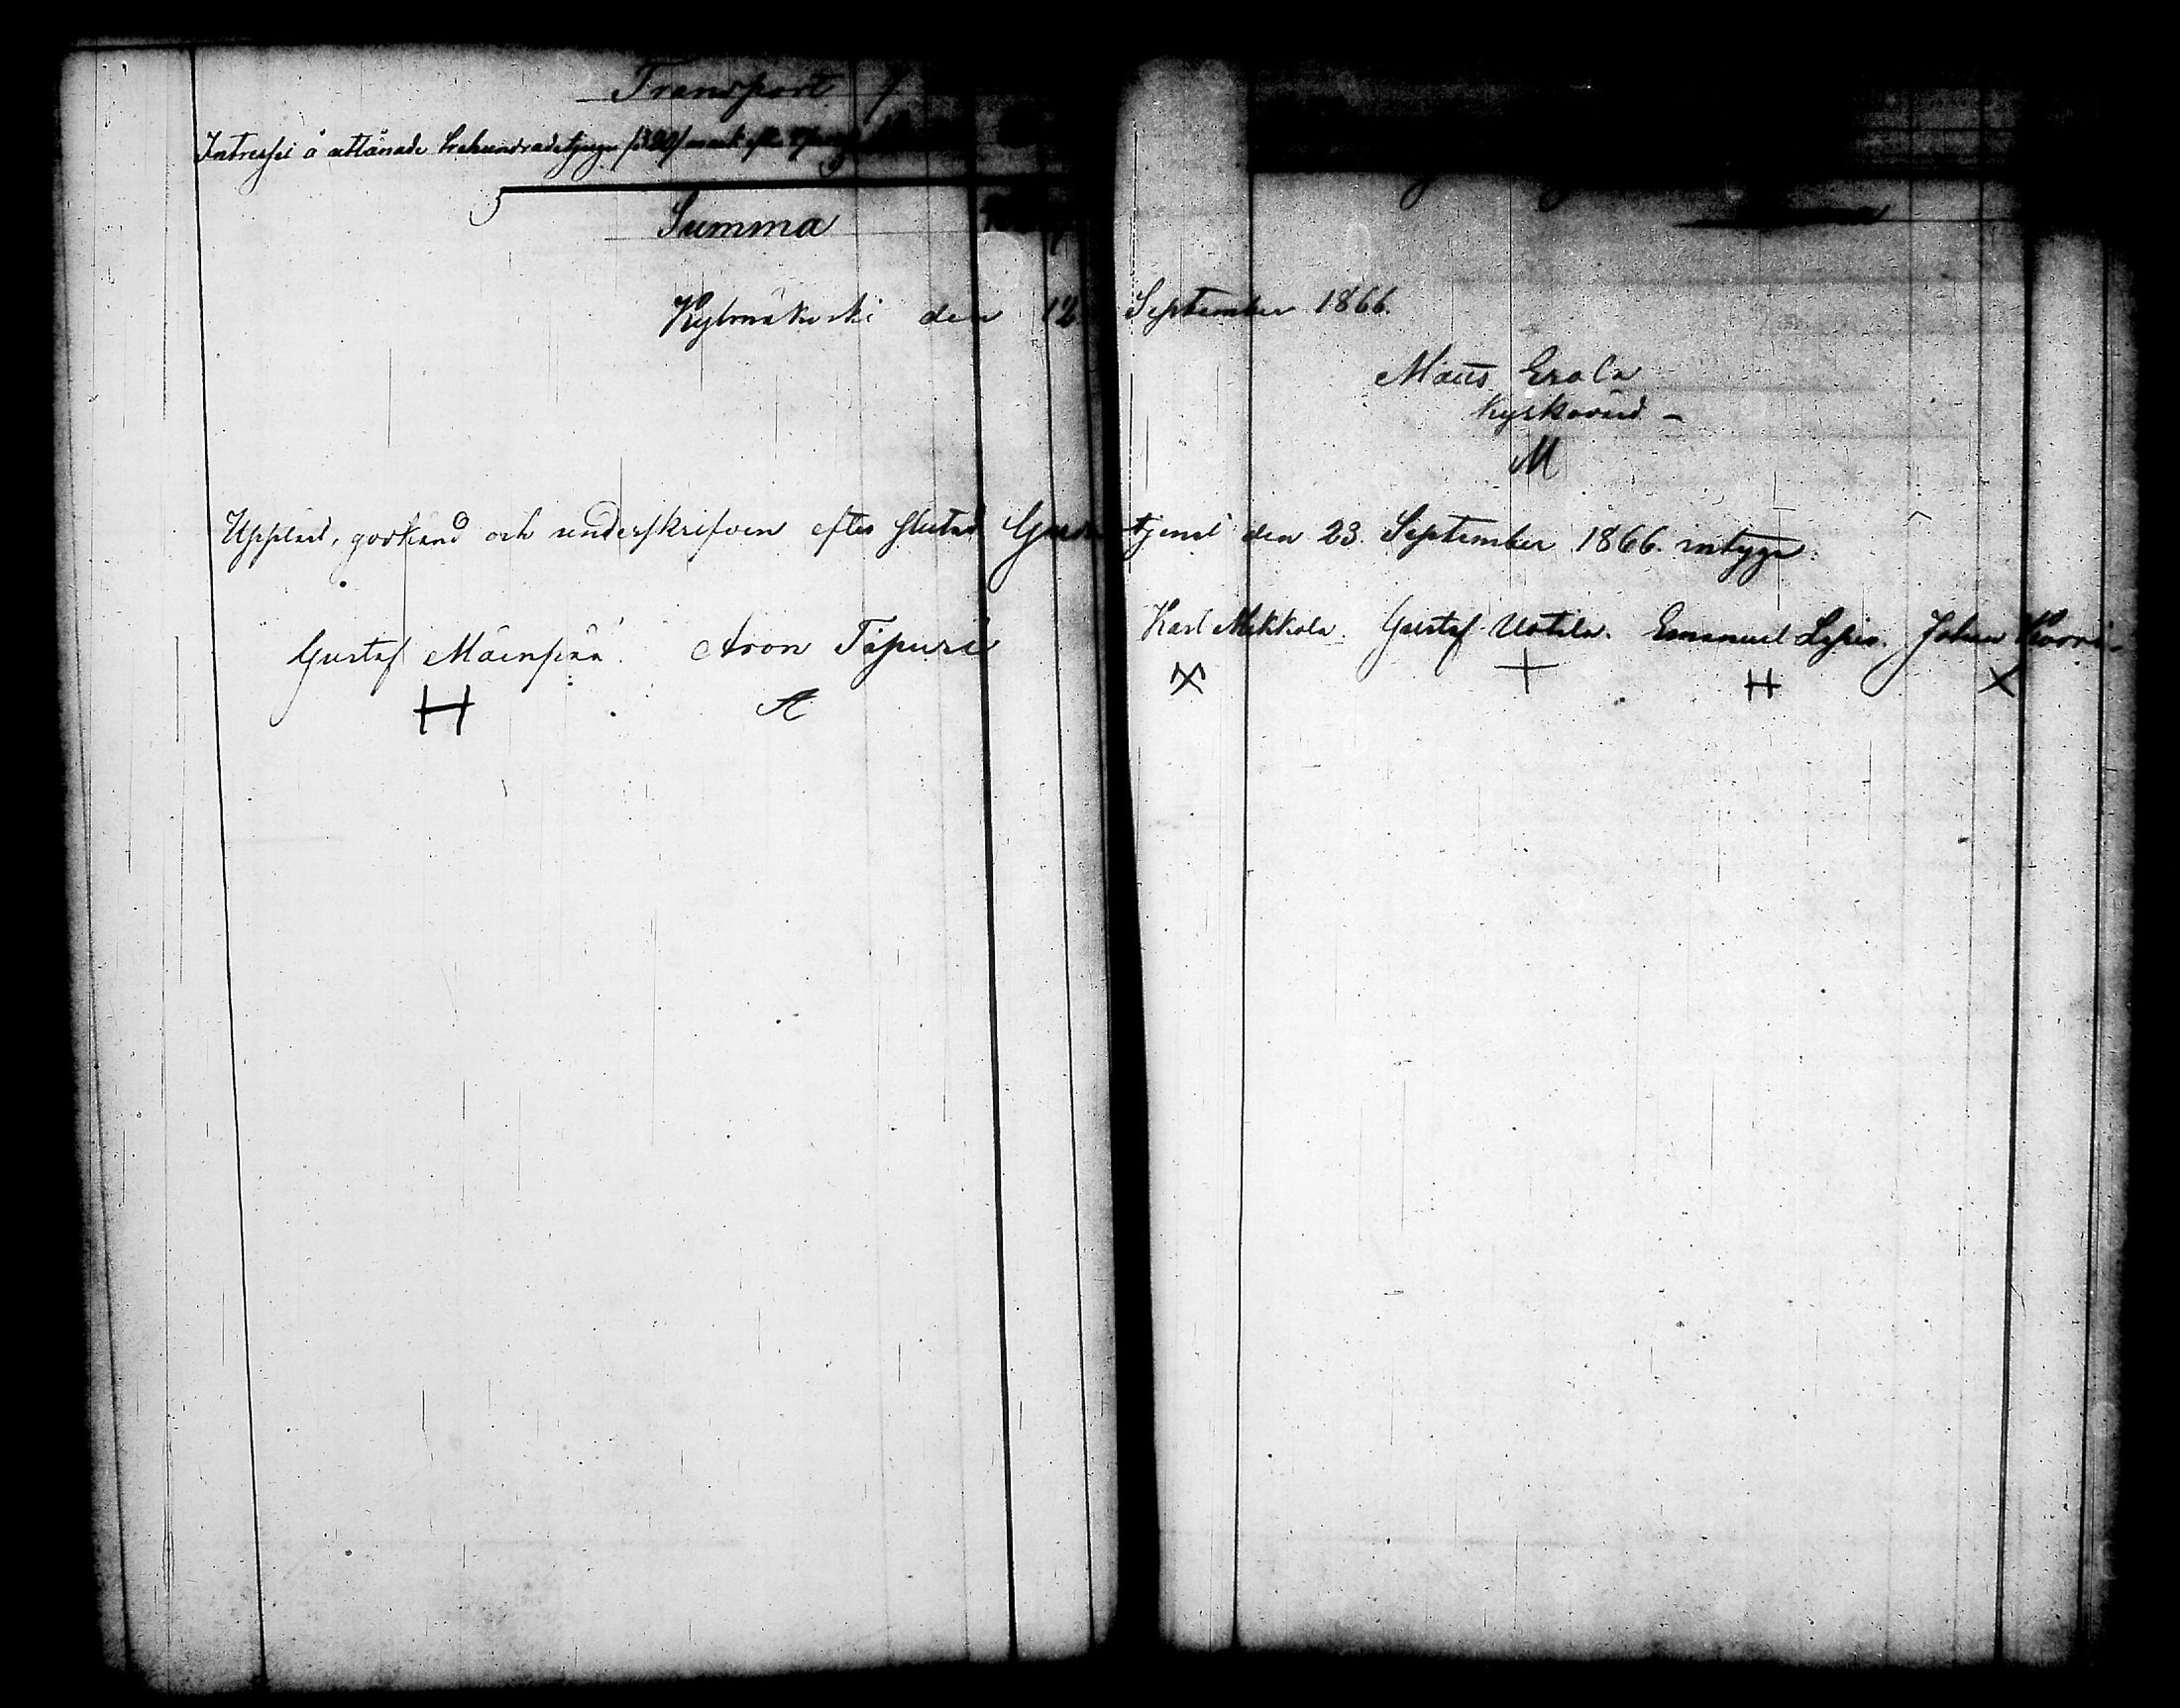 Transport
Intresset å utlånade trehundradetjugu /320/ mark efter
Summa
Kylmäkoski den 12 September 1866.
Matts Erola
Kyrkovärd
M
Uppläst, godkänd och underskrifven efter slutad Gudstjenst den 23. September 1866. intyga:
Gustaf Mäenpää. Aron Tapuri Karl Mikkola. Gustaf Uotila. Emanuel Johan
H A + H X